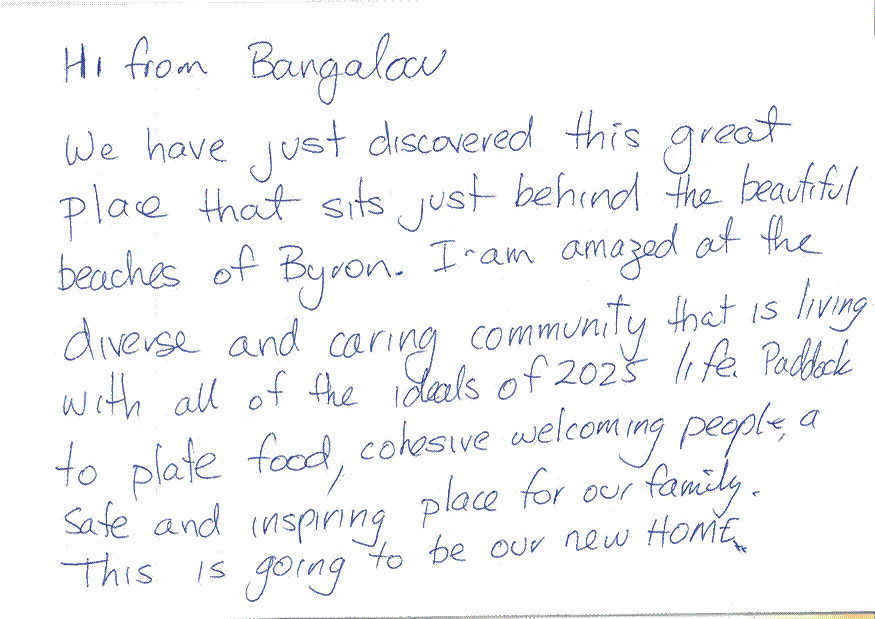 Hi from Bangalow
We have just discovered this great
place that sits just behind the beautiful
beaches of Byron. I am amazed at the
diverse and caring community that is living
with all of the ideals of 2025 life. Paddock
to plate food, cohesive welcoming people, a
safe and inspiring place for our family.
This is going to be our new HOME.